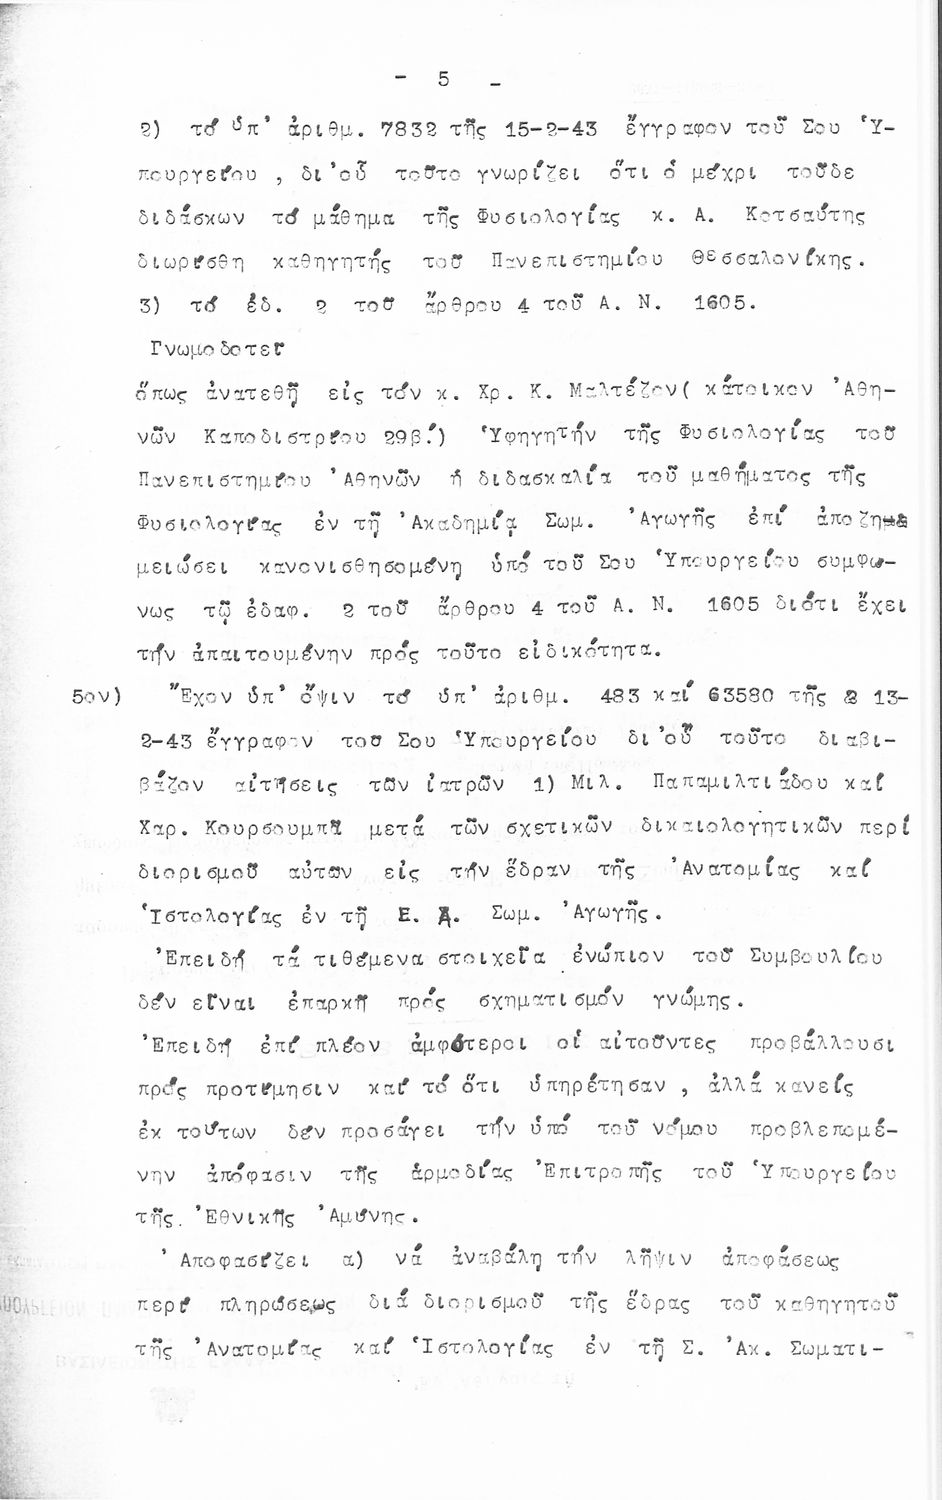 - 5 -
2) τό ὑπ' ἀριθμ. 7832 τῆς 15-2-43 ἔγγραφον τοῦ Σου Ὑ-
πουργείου , δι'οὗ τοῦτο γνωρίζει ὅτι ὁ μέχρι τοῦδε
διδάσκων τό μάθημα τῆς Φυσιολογίας κ. Α. Κοτσαύτης
διωρίσθη καθηγητής τοῦ Πανεπιστημίου Θεσσαλονίκης.
3) τό ἐδ. 2 τοῦ ἄρθρου 4 τοῦ Α. Ν. 1605.
Γνωμοδοτεῖ
ὅπως ἀνατεθῇ εἰς τόν κ. Χρ. Κ. Μαλτέζον( κάτοικον Ἀθη-
νῶν Καποδιστρίου 29β.) Ὑφηγητήν τῆς Φυσιολογίας τοῦ
Πανεπιστημίου Ἀθηνῶν ἡ διδασκαλία τοῦ μαθήματος τῆς
Φυσιολογίας ἐν τῇ Ἀκαδημίᾳ Σωμ. Ἀγωγῆς ἐπί ἀποζη
μειώσει κανονισθησομένῃ ὑπό τοῦ Σου Ὑπουργείου συμφώ-
νως τῷ ἐδαφ. 2 τοῦ ἄρθρου 4 τοῦ Α. Ν. 1605 διότι ἔχει
τήν ἀπαιτουμένην πρός τοῦτο εἰδικότητα.
5ον) Ἔχον ὑπ' ὄψιν τό ὑπ' ἀριθμ. 483 καί 63580 τῆς 13-
2-43 ἔγγραφον τοῦ Σου Ὑπουργείου δι'οὗ τοῦτο διαβι-
βάζον αἰτήσεις τῶν ἰατρῶν 1) Μιλ. Παπαμιλτιάδου καί
Χαρ. Κουρσουμπᾶ μετά τῶν σχετικῶν δικαιολογητικῶν περί
διορισμοῦ αὐτῶν εἰς τήν ἕδραν τῆς Ἀνατομίας καί
Ἱστολογίας ἐν τῇ Ε. Α. Σωμ. Ἀγωγῆς.
Ἐπειδή τά τιθέμενα στοιχεῖα ἐνώπιον τοῦ Συμβουλίου
δέν εἶναι ἐπαρκῆ πρός σχηματισμόν γνώμης.
Ἐπειδή ἐπί πλέον ἀμφότεροι οἱ αἰτοῦντες προβάλλουσι
πρός προτίμησιν καί τό ὅτι ὑπηρέτησαν , ἀλλά κανείς
ἐκ τούτων δέν προσάγει τήν ὑπό τοῦ νόμου προβλεπομέ-
νην ἀπόφασιν τῆς ἁρμοδίας Ἐπιτροπῆς τοῦ Ὑπουργείου
τῆς Ἐθνικῆς Ἀμύνης.
Ἀποφασίζει α) νά ἀναβάλῃ τήν λῆψιν ἀποφάσεως
περί πληρώσεως διά διορισμοῦ τῆς ἕδρας τοῦ καθηγητοῦ
τῆς Ἀνατομίας καί Ἱστολογίας ἐν τῇ Σ. Ἀκ. Σωματι-